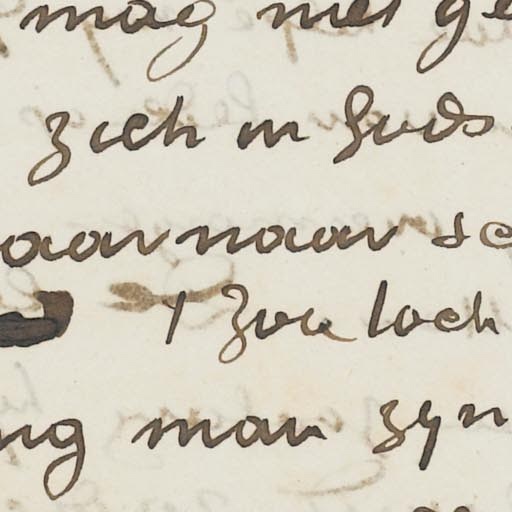 mag met ge
zich in Gods
aar naar de
't zou toch
ng man zyn